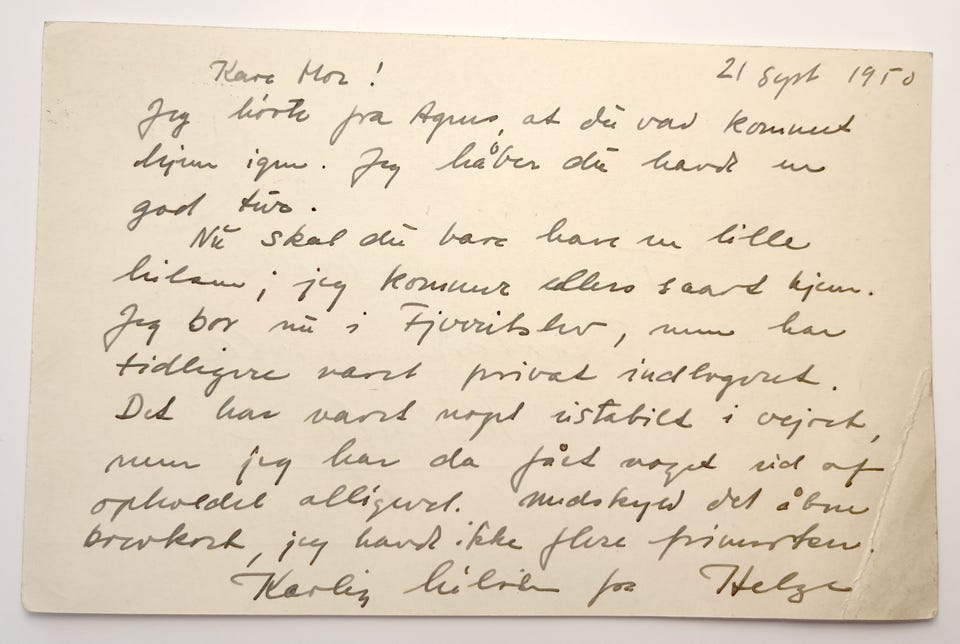 Kære Mor!
21 Sept 1950
Jeg hørte fra Agnes, at du var kommet
hjem igen. Jeg håber du havde en
god tur.
Nu skal du bare have en lille
hilsen; jeg kommer ellers snart hjem.
Jeg bor nu i, men har
tidligere været privat indlogeret.
Det har været noget ustabilt i vejret,
men jeg har da fået noget ud af
opholdet alligevel. Undskyld det åbne
brevkort, jeg havde ikke flere frimærker.
Kærlig hilsen fra Helge